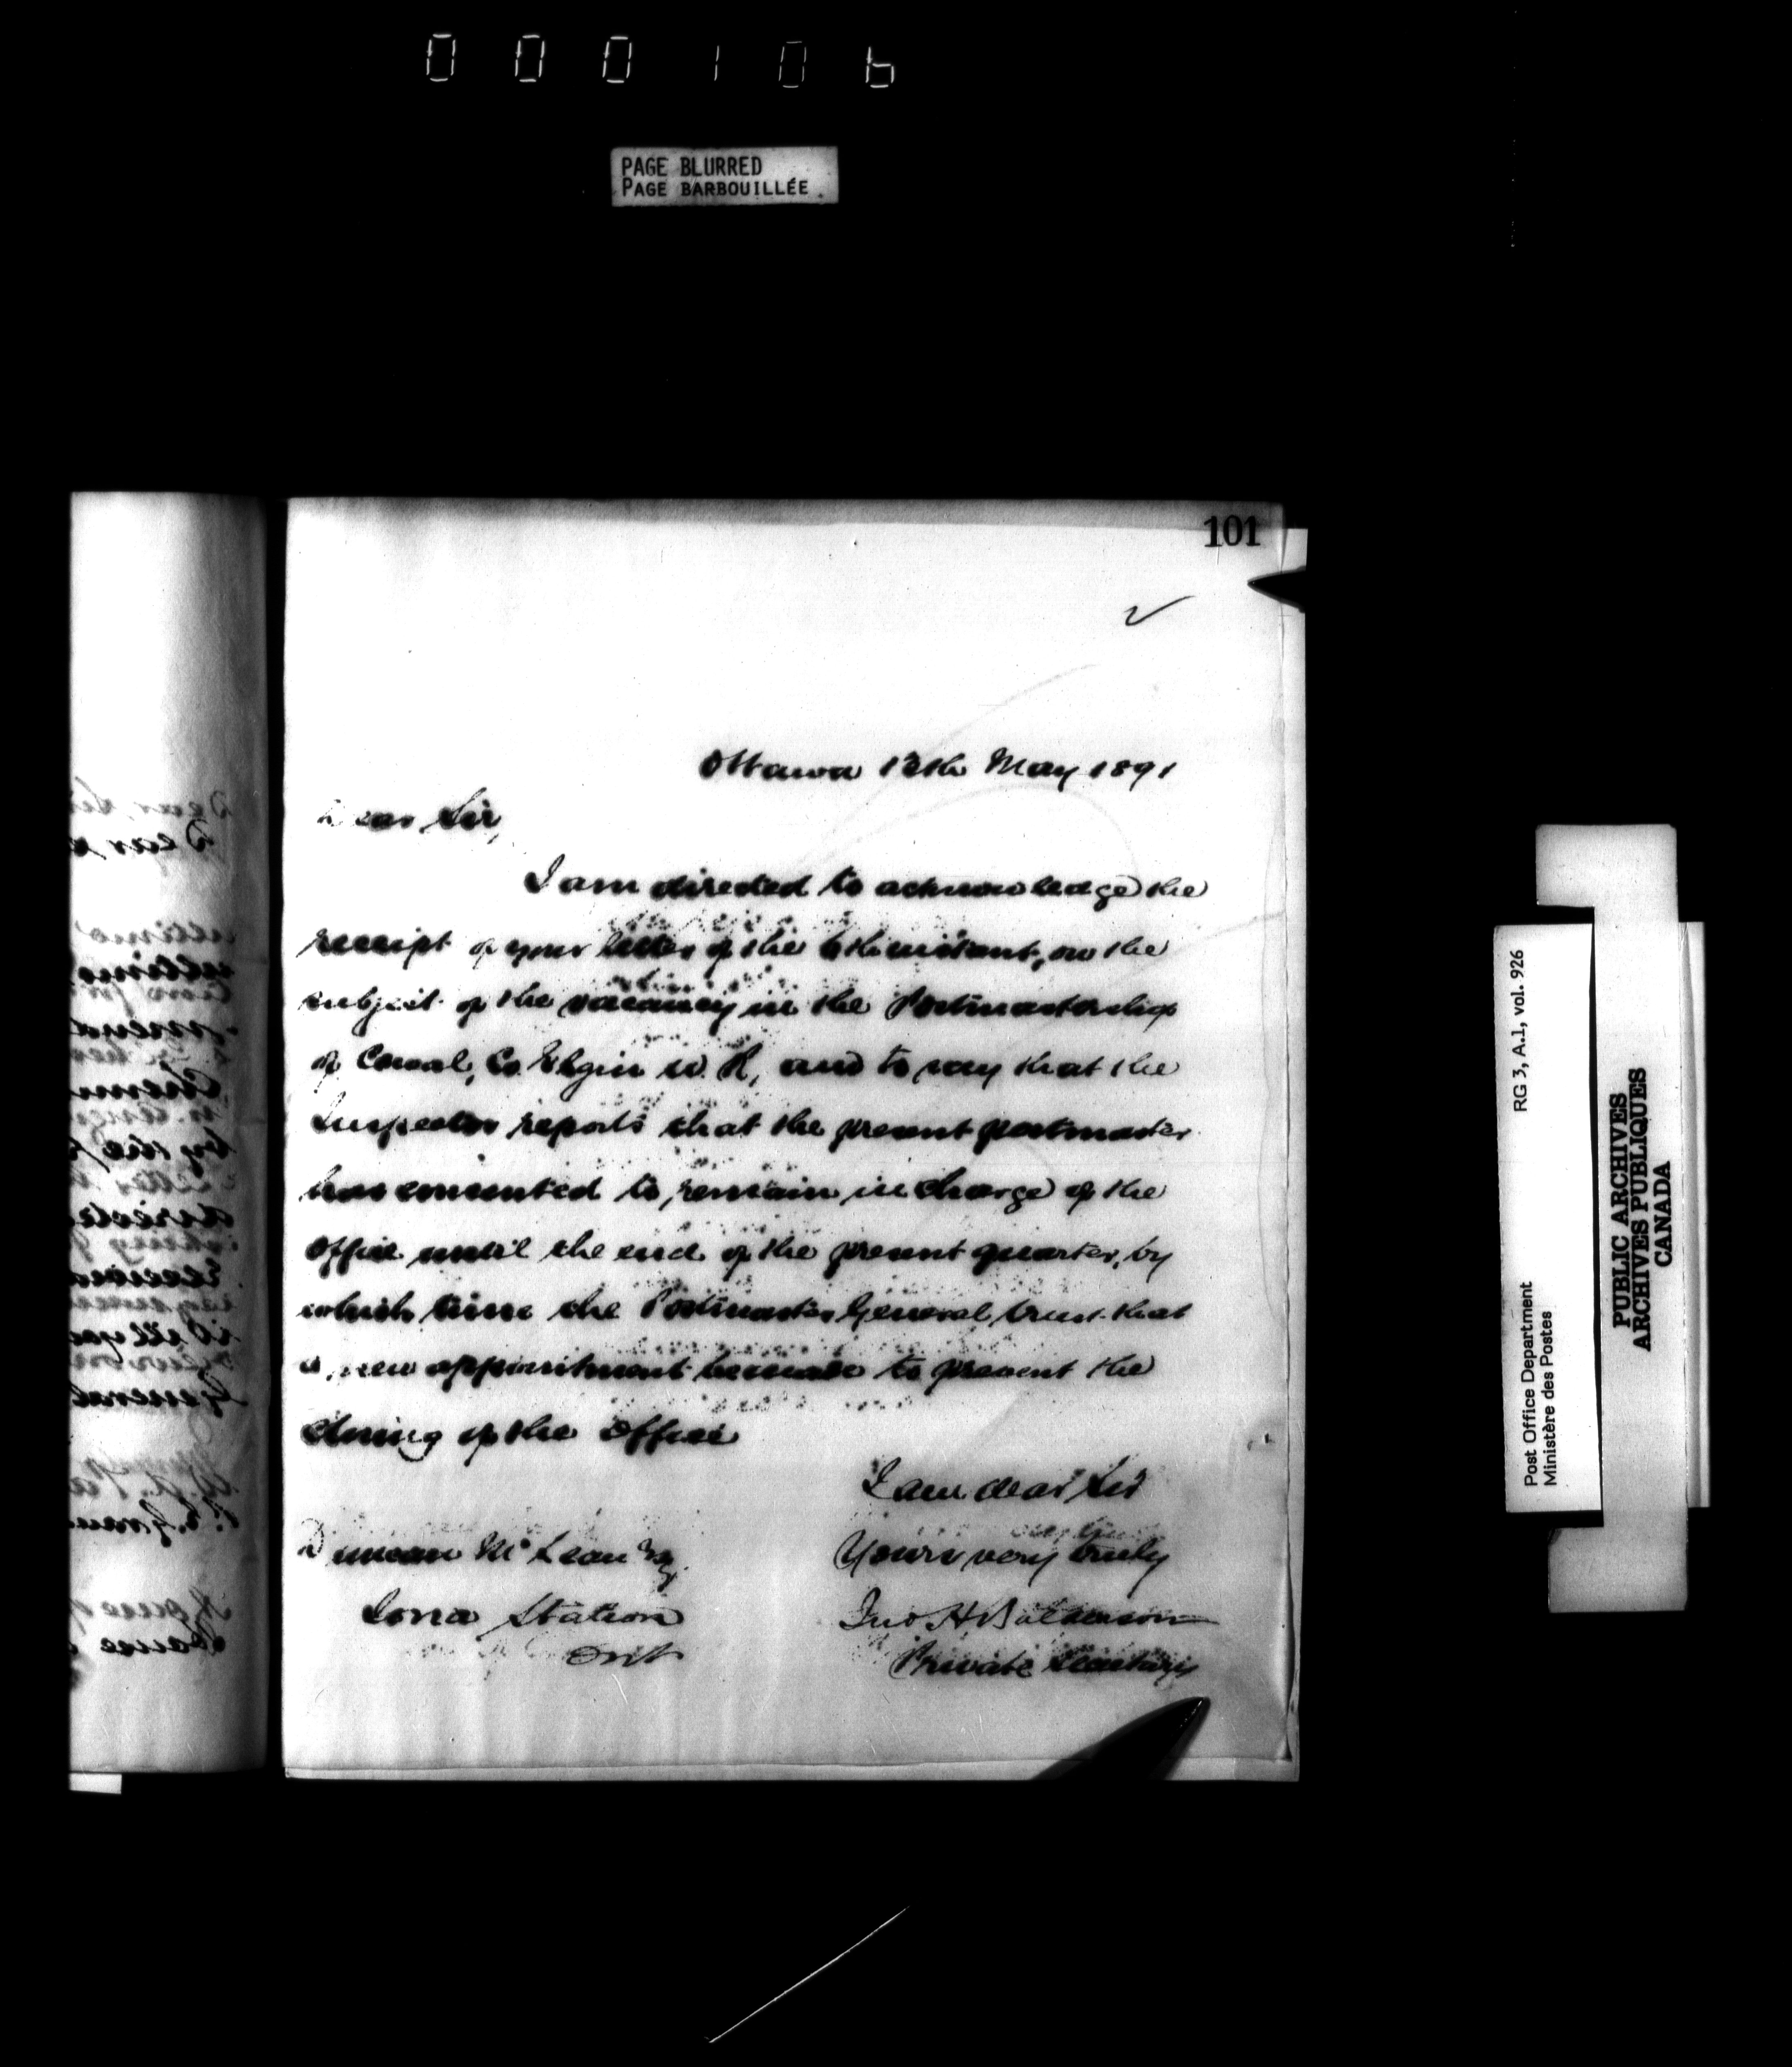 000106
PAGE BLURRED
PAGE BARBOUILLÉE
101
Ottawa 13th May 1891
Dear Sir,
I am directed to acknowledge the
receipt of your letter of the instant, on the
subject of the vacancy in the Postmastership
of Cowal, Co. Elgin W. R, and to say that the
Inspector reports that the present postmaster
has consented to remain in charge of the
Office until the end of the present quarter, by
which time the Postmaster General trust that
a new appointment be made to prevent the
closing of the Office
I am dear Sir
Yours very truly
Jno H Balderson
Private Secretary
Duncan McLean Esq
Iona Station
Ont
RG 3, A.1, vol. 926
Post Office Department
Ministère des Postes
PUBLIC ARCHIVES
ARCHIVES PUBLIQUES
CANADA